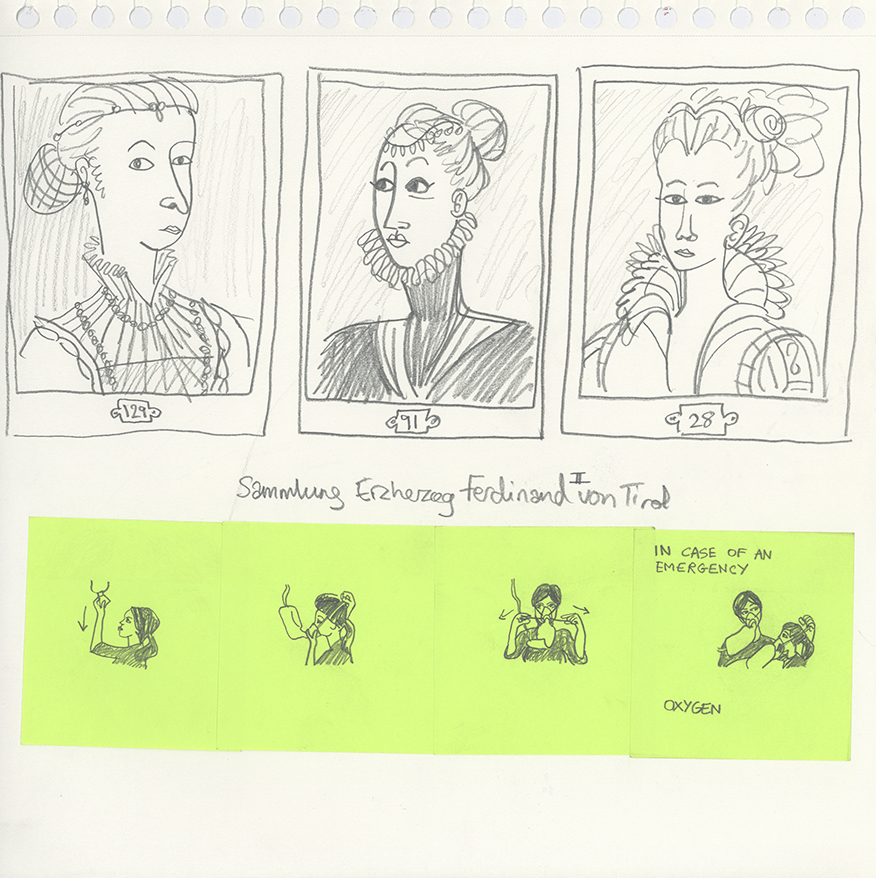 129
91
28
Sammlung Erzherzog Ferdinand II von Tirol
IN CASE OF AN
EMERGENCY
OXYGEN